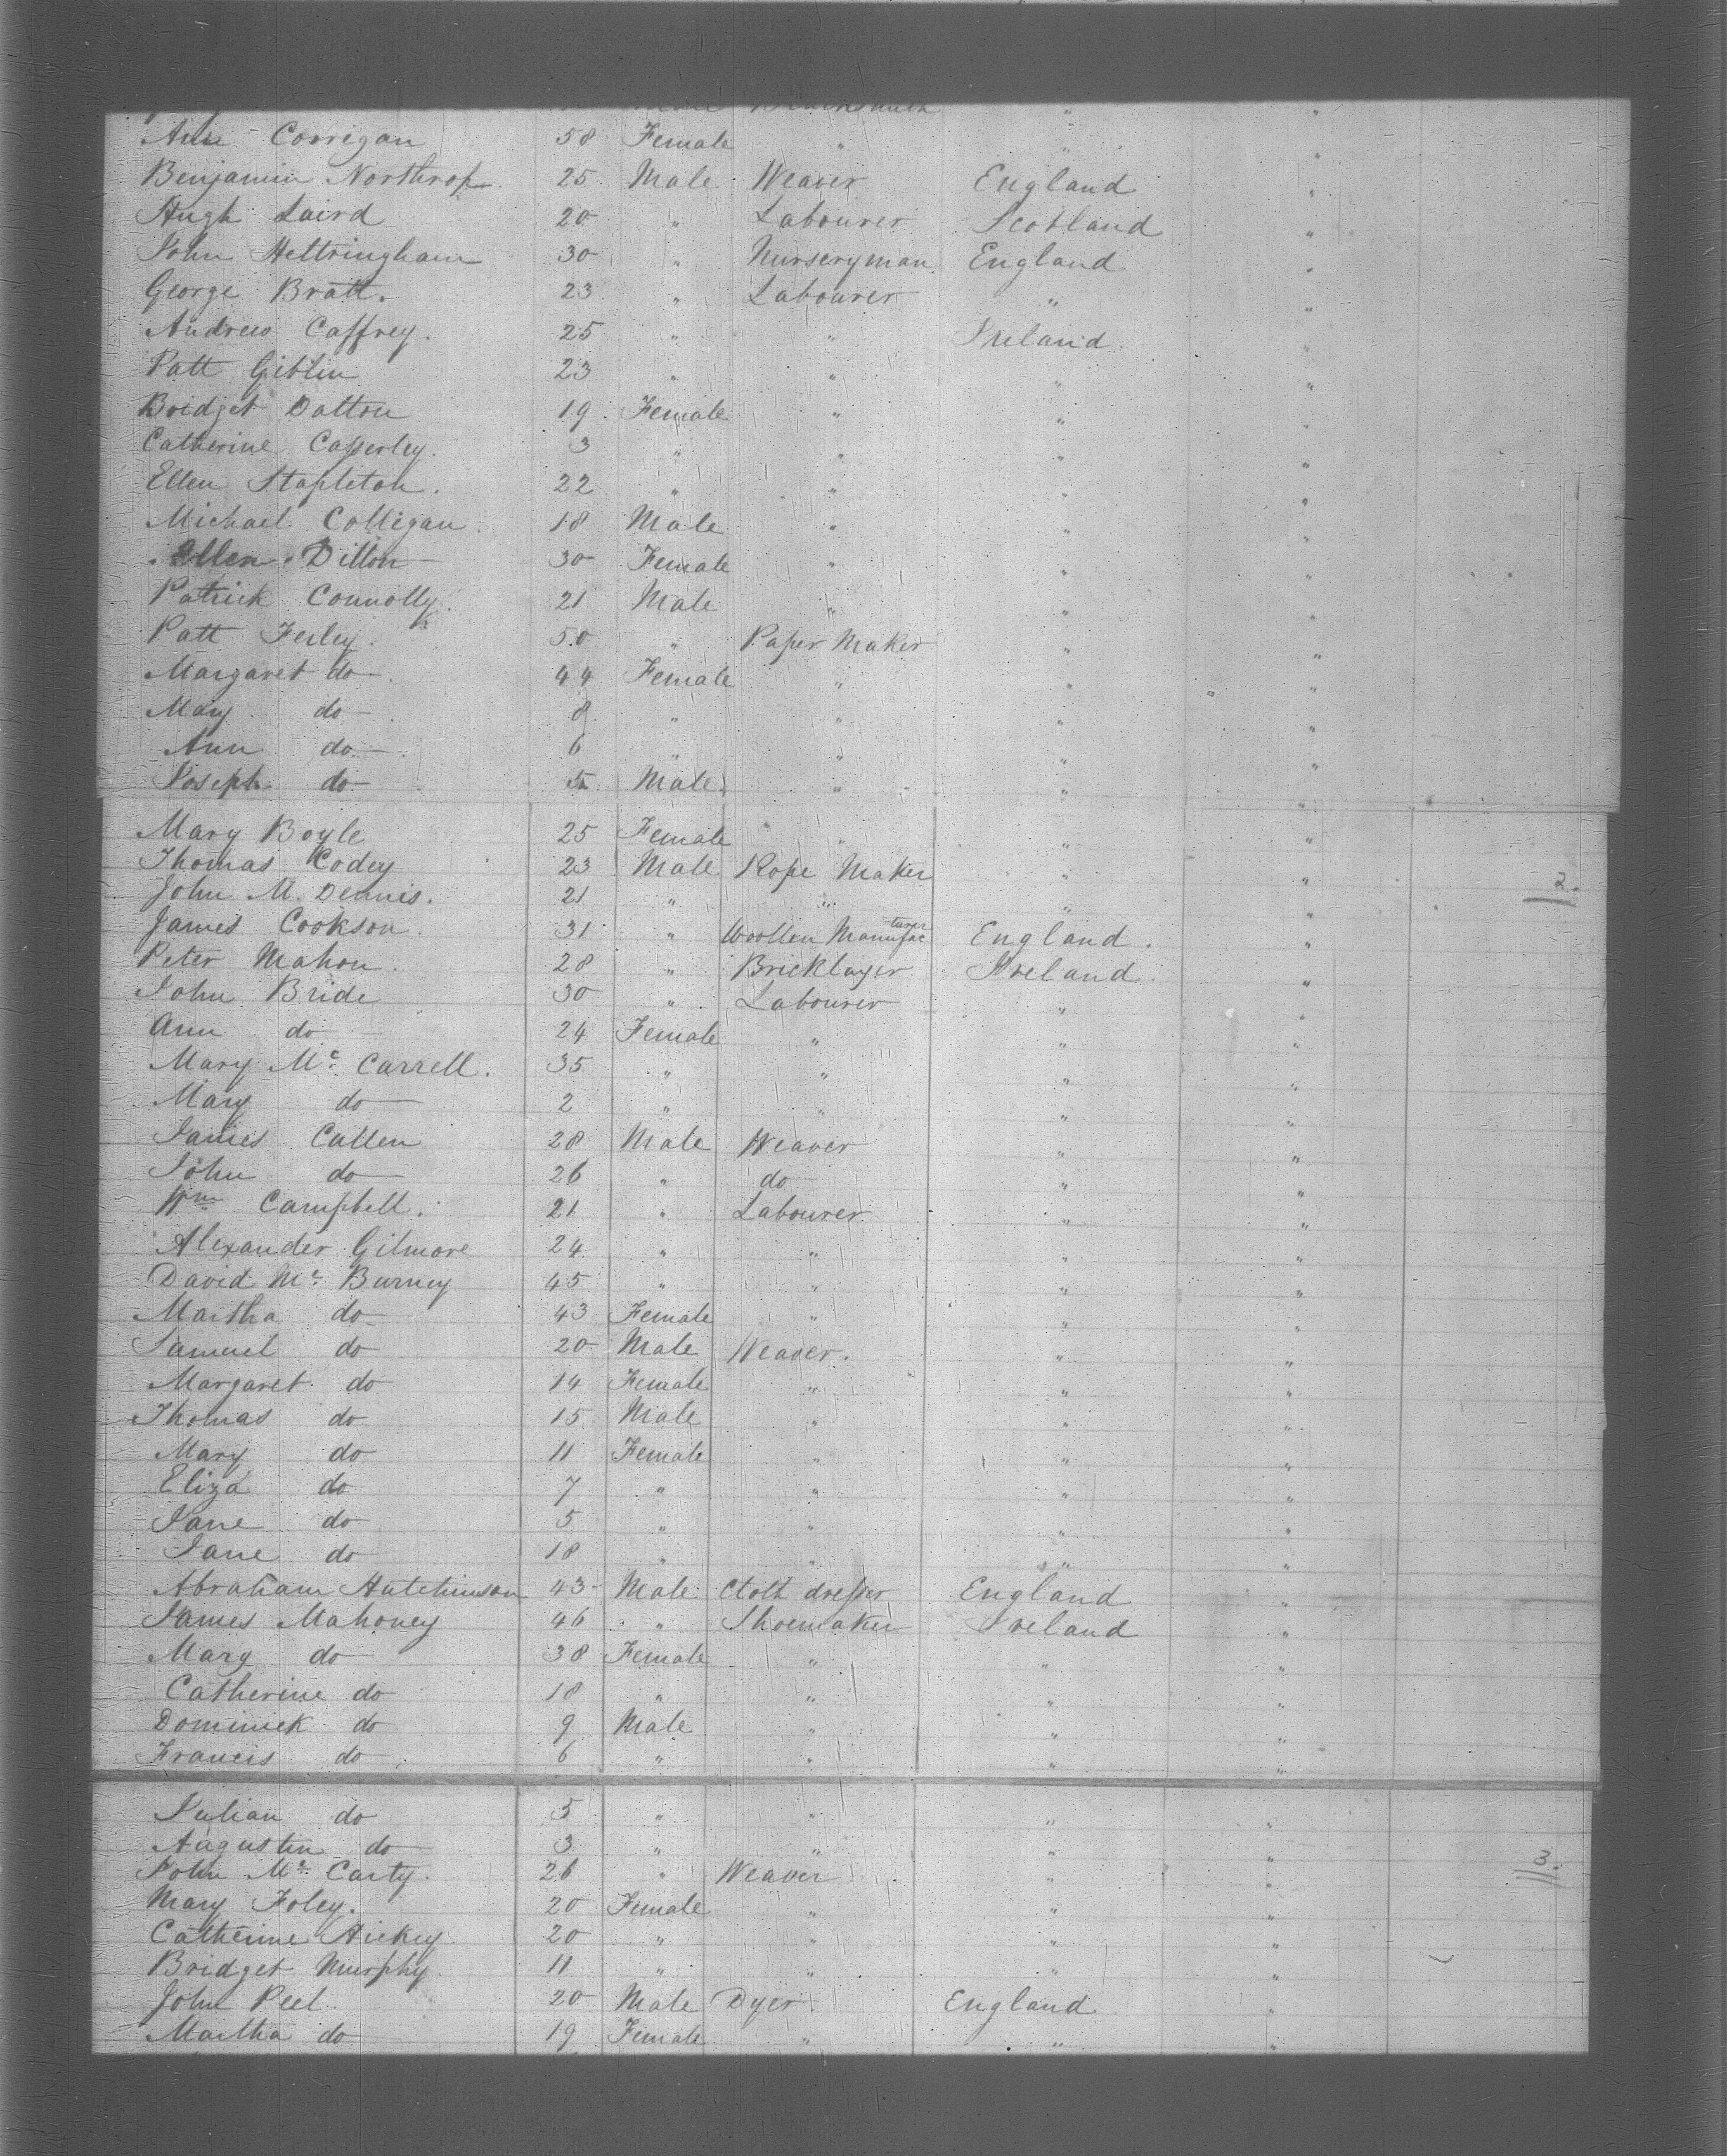 Ann Corrigan 58 Female " "
Benjamin Northrop 25 Male Weaver England "
Hugh Laird 20 " Labourer Scotland "
John Hettringham 30 " Nurseryman England "
George Bratt. 23 " Labourer " "
Andrew Caffrey. 25 " " Ireland. "
Patt Giblin 23 " " " "
Bridget Dalton 19 Female " " "
Catherine Casserley. 3 " " " "
Ellen Stapleton. 22 " " " "
Michael Colligan. 18 Male " " "
Ellen Dillon 30 Female " " "
Patrick Connolly. 21 Male " " "
Patt Ferley. 50 " Paper Maker " "
Margaret do 44 Female " " "
Mary do 8 " " " "
Ann do 6 " " " "
Joseph do 5 Male " " "
Mary Boyle 25 Female " " "
Thomas Codey 23 Male Rope Maker " " 2.
John M. Dennis. 21 " " " "
James Cookson. 31 " Woollen Manufacturer England. "
Peter Mahon. 28 " Bricklayer Ireland. "
John Bride 30 " Labourer " "
Ann do 24 Female " " "
Mary Mc Carrell. 35 " " " "
Mary do 2 " " " "
James Cullen 28 Male Weaver " "
John do 26 " do " "
Wm Campbell. 21 " Labourer " "
Alexander Gilmore 24 " " " "
David Mc Burney 45 " " " "
Martha do 43 Female " " "
Samuel do 20 Male Weaver. " "
Margaret do 14 Female " " "
Thomas do 15 Male " " "
Mary do 11 Female " " "
Eliza do 7 " " " "
Jane do 5 " " " "
Jane do 18 " " " "
Abraham Hutchinson 43 Male Cloth dresser England "
James Mahoney 46 " Shoemaker Ireland "
Mary do 38 Female " " "
Catherine do 18 " " " "
Dominick do 9 Male " " "
Francis do 6 " " " "
Julian do 5 " " " "
Augustin do 3 " " " "
John Mc Carty. 26 " Weaver " " 3.
Mary Foley. 20 Female " " "
Catherine Hickey 20 " " " "
Bridget Murphy 11 " " " "
John Peel 20 Male Dyer. England "
Martha do 19 Female " " "